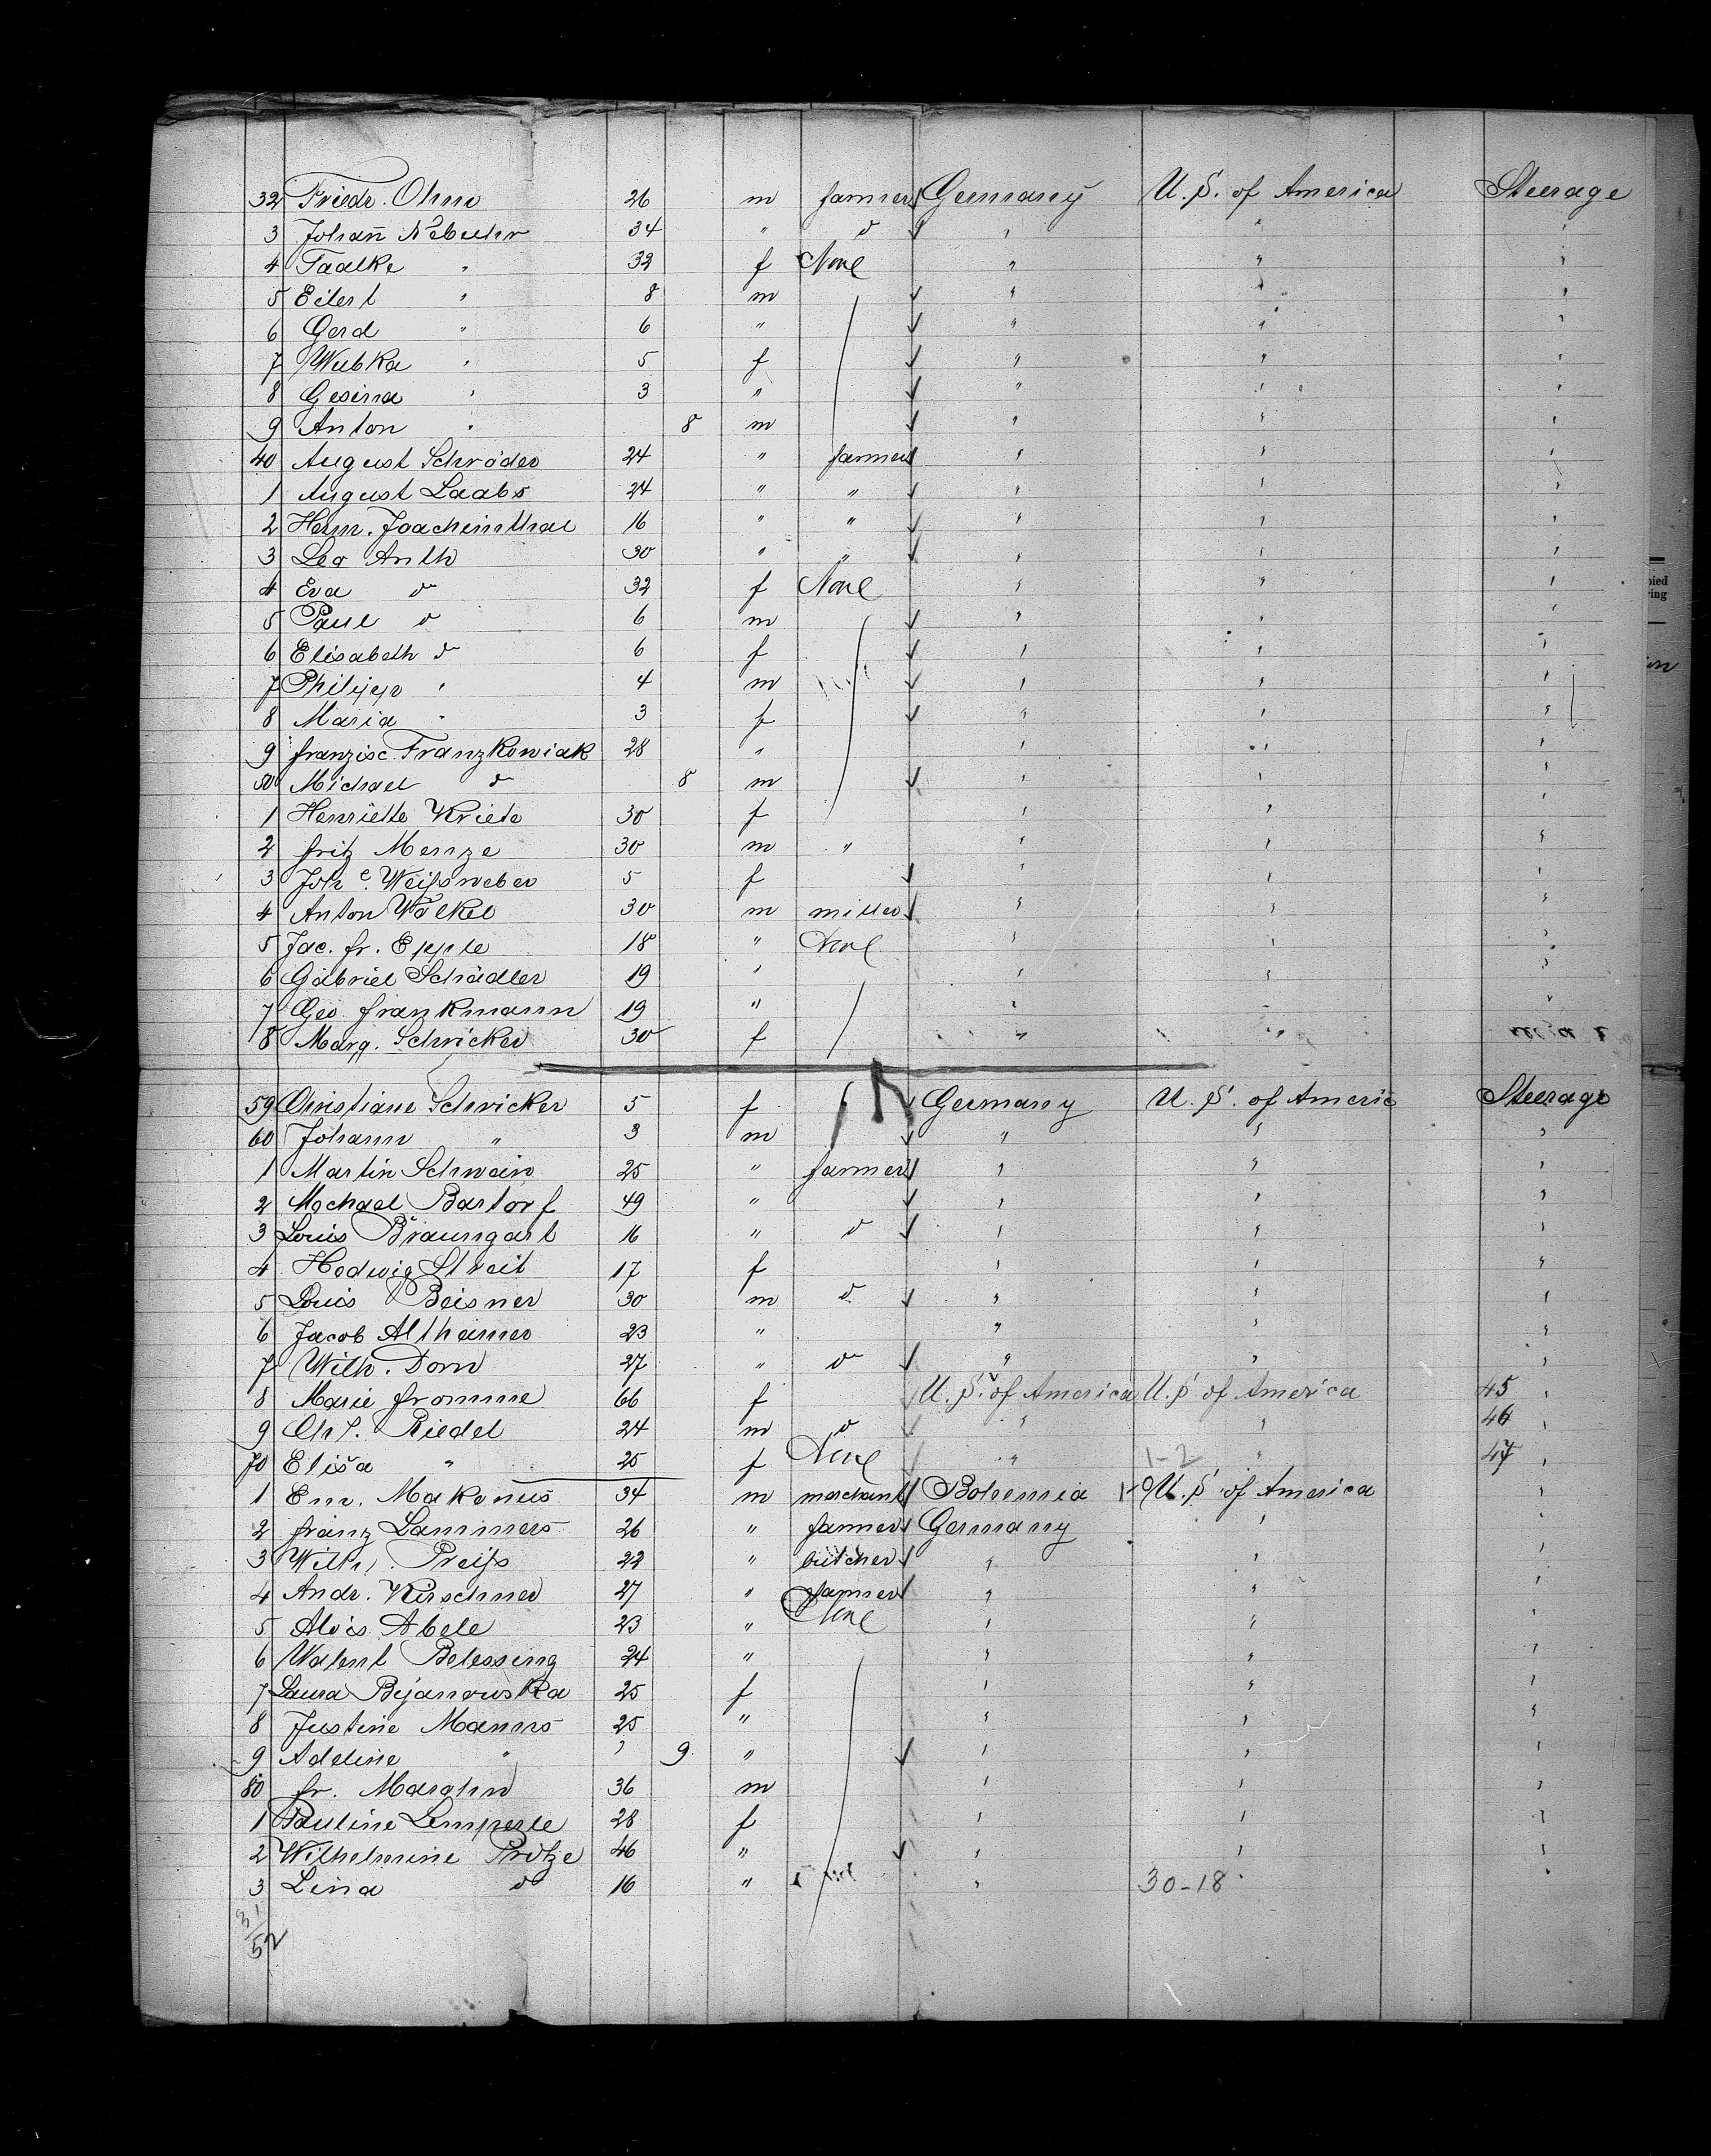 32 Friedr. Ohm 26 m farmer Germany U.S. of America Steerage
3 Johañ Nebuhr 34 " do " " "
4 Taalke " 32 f None " " "
5 Eilert " 8 m " " "
6 Gerd " 6 " " " "
7 Wubka " 5 f " " "
8 Gesina " 3 " " " "
9 Anton " 8 m " " "
40 August Schröder 24 " farmer " " "
1 August Laabs 24 " " " " "
2 Herm. Joachimthal 16 " " " " "
3 Leo Anth 30 " " " " "
4 Eva do 32 f None " " "
5 Paul do 6 m " " "
6 Elisabeth do 6 f " " "
7 Philipp " 4 m " " "
8 Maria " 3 f " " "
9 franzisc. Franzkowiak 28 " " " "
50 Michael do 8 m " " "
1 Henriette Kriete 30 f " " "
2 fritz Menze 30 m " " " "
3 Joh e. Weißweber 5 f " " "
4 Anton Wölkel 30 m miller " " "
5 Jac. fr. Epple 18 " None " " "
6 Gabriel Schädler 19 " " " "
7 Geo frankmann 19 " " " "
8 Marg. Schricker 30 f " "
59 Christiane Schricker 5 f Germany U.S. of Americ Steerage
60 Johann " 3 m " " "
1 Martin Schwain 25 " farmer " " "
2 Mochael Bastorf 49 " " " "
3 Louis Braungart 16 " do " " "
4 Hedwig Streit 17 f " " "
5 Louis Beisner 30 m do " " "
6 Jacob Althamer 23 " " " "
7 Wilh. Dorn 27 " do " " "
8 Marie fromme 66 f U.S. of America U.S of America 45 "
9 Chr. Riedel 24 m do " " 46 "
70 Elisa " 25 f None " 1-2 " 47 "
1 Em. Makonus 34 m merchant Bohemia 1-0 U.S of America "
2 franz Lammers 26 " farmer Germany " "
3 Wilh. Preiß 22 " butcher " " "
4 Andr. Kirschner 27 " farmer " " "
5 Alois Abele 23 " None " " "
6 Walent Belessing 24 " " " "
7 Laura Bijanowska 25 f " " "
8 Justine Manns 25 " " " "
9 Adeline " 9 " " " "
80 fr. Marahn 36 m " " "
1 Pauline Lemperle 28 f " " "
2 Wilhelmine Protze 46 " " " "
3 Lina do 16 " " 30-18 "
31
52